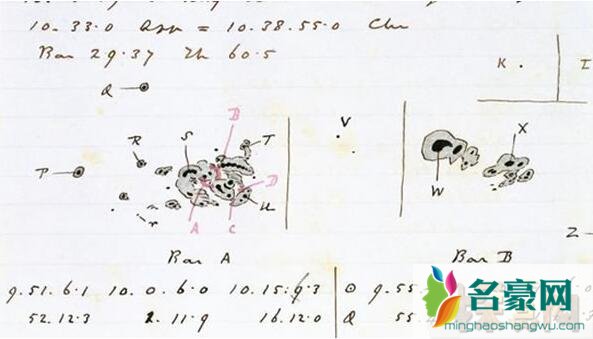 10.33.0 App = 10.38.55.0 Clu
Bar 29.37 Th 60.5
K
I
Q
B
V
R
S
T
X
P
D
W
A
C
U
Z
Bar A
Bar B
9.51.6.1 10.0.6.0 10.15.9.3 ⊙ 9.55
52.12.3 2.11.9 16.12.0 Q 55
名豪网
minghaoshangwu.com